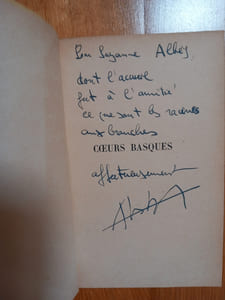 Pour Suzanne Albey,
dont l'accueil
fut à l'amitié
ce que sont les racines
aux branches
CŒURS BASQUES
affectueusement